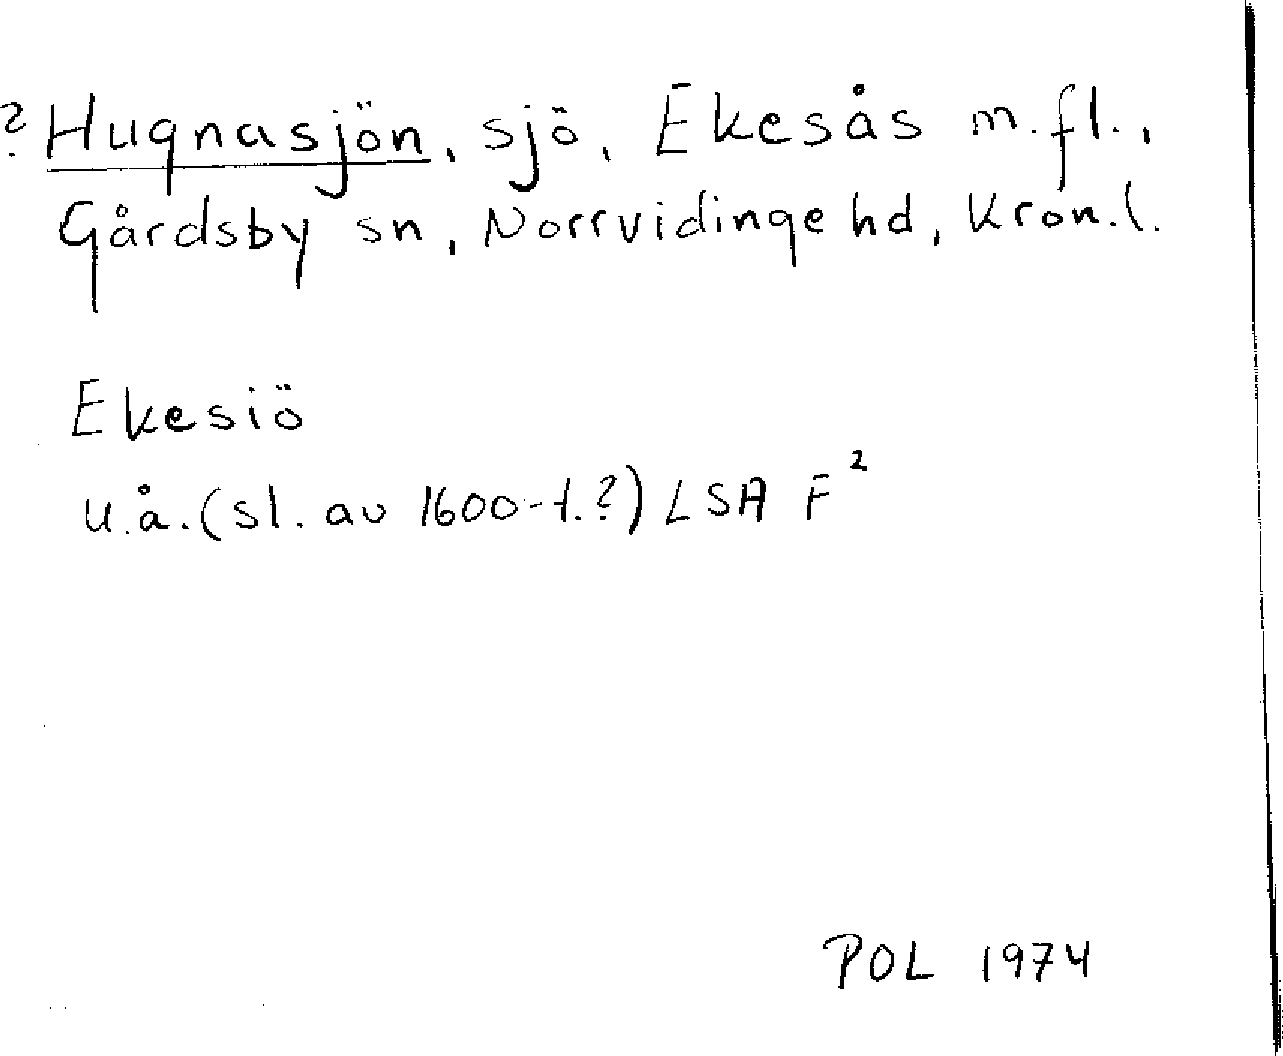 ? Hugnasjön, sjö, Ekesås m.fl.,
Gårdsby sn, Norrvidinge hd, Kron.l.
Ekesiö
u.å. (sl. av 1600-t.?) LSA F²
POL 1974